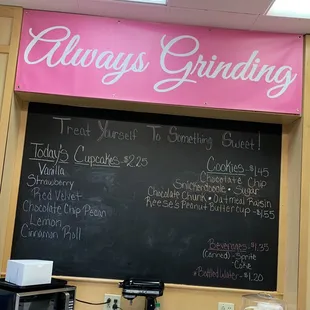 Always Grinding
Treat Yourself To Something Sweet!
Today's Cupcakes $2.25
Vanilla
Strawberry
Red Velvet
Chocolate Chip Pecan
Lemon
Cinnamon Roll
Cookies $1.45
Chocolate Chip
Snickerdoodle • Sugar
Chocolate Chunk • Oatmeal Raisin
Reese's Peanut Butter Cup - $1.55
Beverages $1.35
(Canned) - Sprite
- Coke
Bottled Water - $1.20